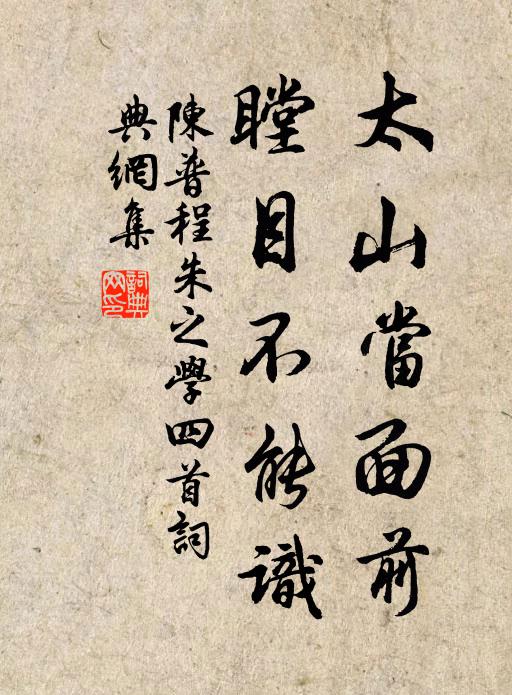 太山當面前
瞠目不能識
陳普程朱之學四首詞
典網集
詞典網印